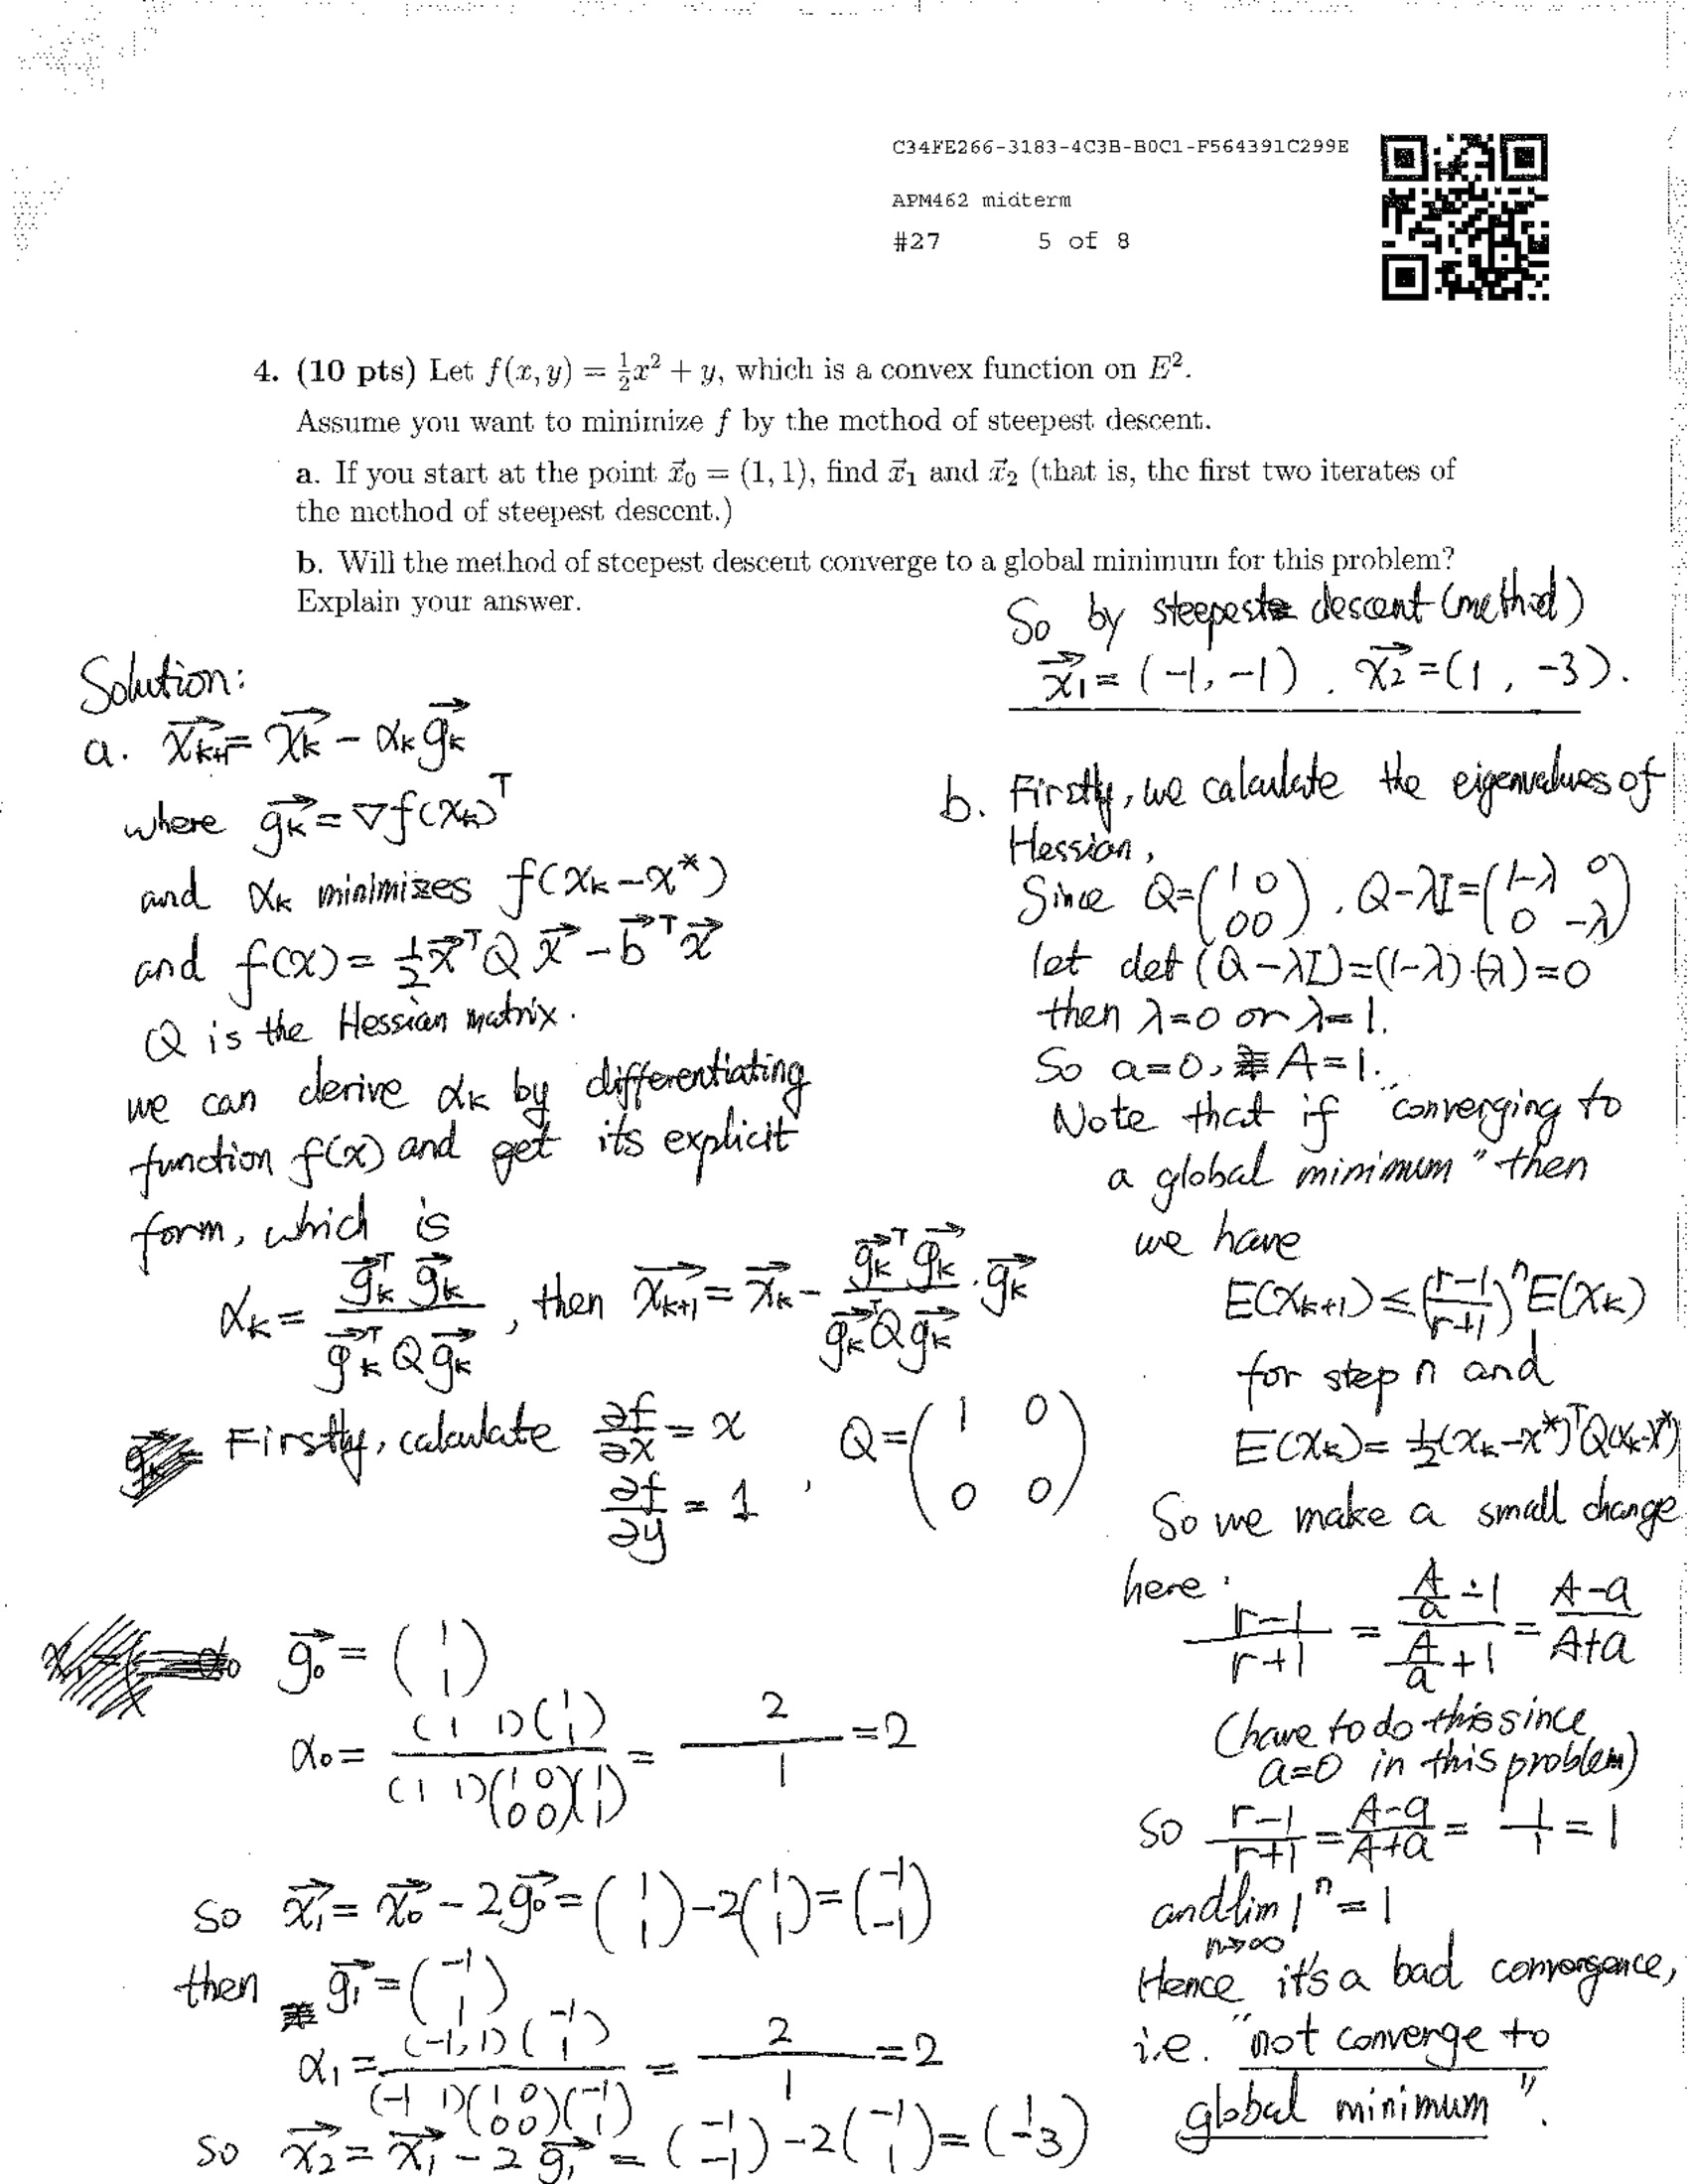 C34FE266-3183-4C3B-B0C1-F564391C299E
APM462 midterm
#27 5 of 8
4. (10 pts) Let f(x, y) = ½x² + y, which is a convex function on E².
Assume you want to minimize f by the method of steepest descent.
a. If you start at the point x⃗₀ = (1, 1), find x⃗₁ and x⃗₂ (that is, the first two iterates of
the method of steepest descent.)
b. Will the method of steepest descent converge to a global minimum for this problem?
Explain your answer.
Solution:
a. x⃗ₖ₊₁ = x⃗ₖ − αₖ g⃗ₖ
where g⃗ₖ = ∇f(xₖ)ᵀ
and αₖ minimizes f(xₖ − x*)
and f(x) = ½ x⃗ᵀ Q x⃗ − b⃗ᵀ x⃗
Q is the Hessian matrix.
we can derive αₖ by differentiating
function f(x) and get its explicit
form, which is
αₖ = (g⃗ₖᵀ g⃗ₖ)/(g⃗ₖᵀ Q g⃗ₖ), then x⃗ₖ₊₁ = x⃗ₖ − (g⃗ₖᵀ g⃗ₖ)/(g⃗ₖᵀ Q g⃗ₖ) · g⃗ₖ
Firstly, calculate ∂f/∂x = x
∂f/∂y = 1 , Q = (1 0; 0 0)
g⃗₀ = (1; 1)
α₀ = ((1 1)(1; 1))/((1 1)(1 0; 0 0)(1; 1)) = 2/1 = 2
so x⃗₁ = x⃗₀ − 2g⃗₀ = (1; 1) − 2(1; 1) = (-1; -1)
then g⃗₁ = (-1; 1)
α₁ = ((-1, 1)(-1; 1))/((-1 1)(1 0; 0 0)(-1; 1)) = 2/1 = 2
so x⃗₂ = x⃗₁ − 2g⃗₁ = (-1; -1) − 2(-1; 1) = (1; -3)
So by steepest descent (method)
x⃗₁ = (-1, -1) . x⃗₂ = (1, -3).
b. Firstly, we calculate the eigenvalues of
Hessian,
Since Q = (1 0; 0 0) . Q − λI = (1-λ 0; 0 -λ)
let det (Q − λI) = (1-λ)·(-λ) = 0
then λ=0 or λ=1.
So a=0, A=1.
Note that if "converging to
a global minimum" then
we have
E(xₖ₊₁) ≤ ((r−1)/(r+1))ⁿ E(xₖ)
for step n and
E(xₖ) = ½(xₖ − x*)ᵀQ(xₖ − x*)
So we make a small change
here:
(r−1)/(r+1) = (A/a − 1)/(A/a + 1) = (A−a)/(A+a)
(have to do this since
a=0 in this problem)
so (r−1)/(r+1) = (A−a)/(A+a) = 1/1 = 1
and lim n→∞ 1ⁿ = 1
Hence it's a bad convergence,
i.e. "not converge to
global minimum".